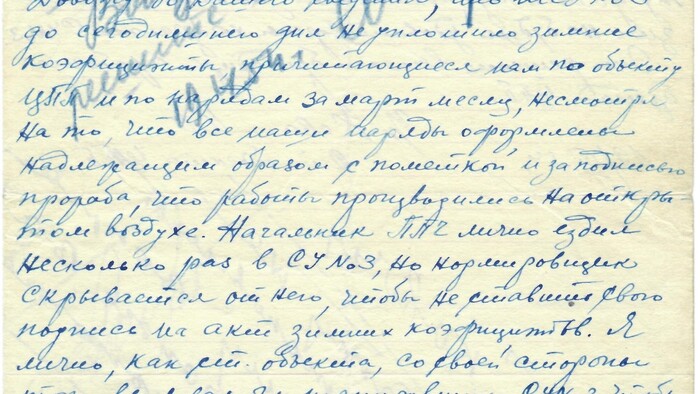 до сегодняшнего дня не уплотило зимние
коэфициэнты причитающиеся нам по объекту
и по нарядам за март месяц, несмотря
на то, что все наши наряды оформлены
надлежащим образом с пометкой и за подписью
прораба, что работы производились на откры-
том воздухе. Начальник ППЧ лично ездил
несколько раз в СУ №3, но нормировщик
скрывается от него, чтобы не ставить свою
подпись на акт зимних коэфициэнтов. Я
лично, как ст. объекта, со своей стороны